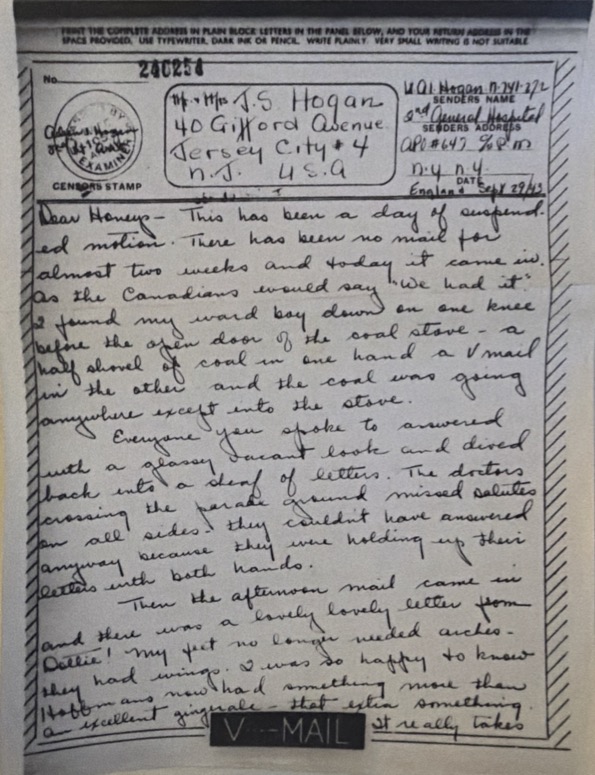 PRINT THE COMPLETE ADDRESS IN PLAIN BLOCK LETTERS IN THE PANEL BELOW, AND YOUR RETURN ADDRESS IN THE
SPACE PROVIDED. USE TYPEWRITER, DARK INK OR PENCIL. WRITE PLAINLY. VERY SMALL WRITING IS NOT SUITABLE.
No.
EXAMINER
CENSORS STAMP
J.S. Hogan
40 Gifford Avenue
Jersey City 4
N.J. U.S.A
Hogan N-741-272
SENDERS NAME
2nd General Hospital
SENDERS ADDRESS
APO #647
N.Y. N.Y.
DATE
England Sept 29/43
Dear Honeys - This has been a day of suspend-
ed motion. There has been no mail for
almost two weeks and today it came in.
As the Canadians would say "We had it".
I found my ward boy down on one knee
before the open door of the coal stove - a
half shovel of coal in one hand a V mail
in the other and the coal was going
anywhere except into the stove.
Everyone you spoke to answered
with a glassy vacant look and dived
back into a sheaf of letters. The doctors
crossing the parade ground missed salutes
on all sides - they couldn't have answered
anyway because they were holding up their
letters with both hands.
Then the afternoon mail came in
and there was a lovely lovely letter from
Dottie! My feet no longer needed arches -
they had wings. I was so happy to know
Hoffmans now had something more than
an excellent gingerale - that extra something.
It really takes
V···—MAIL